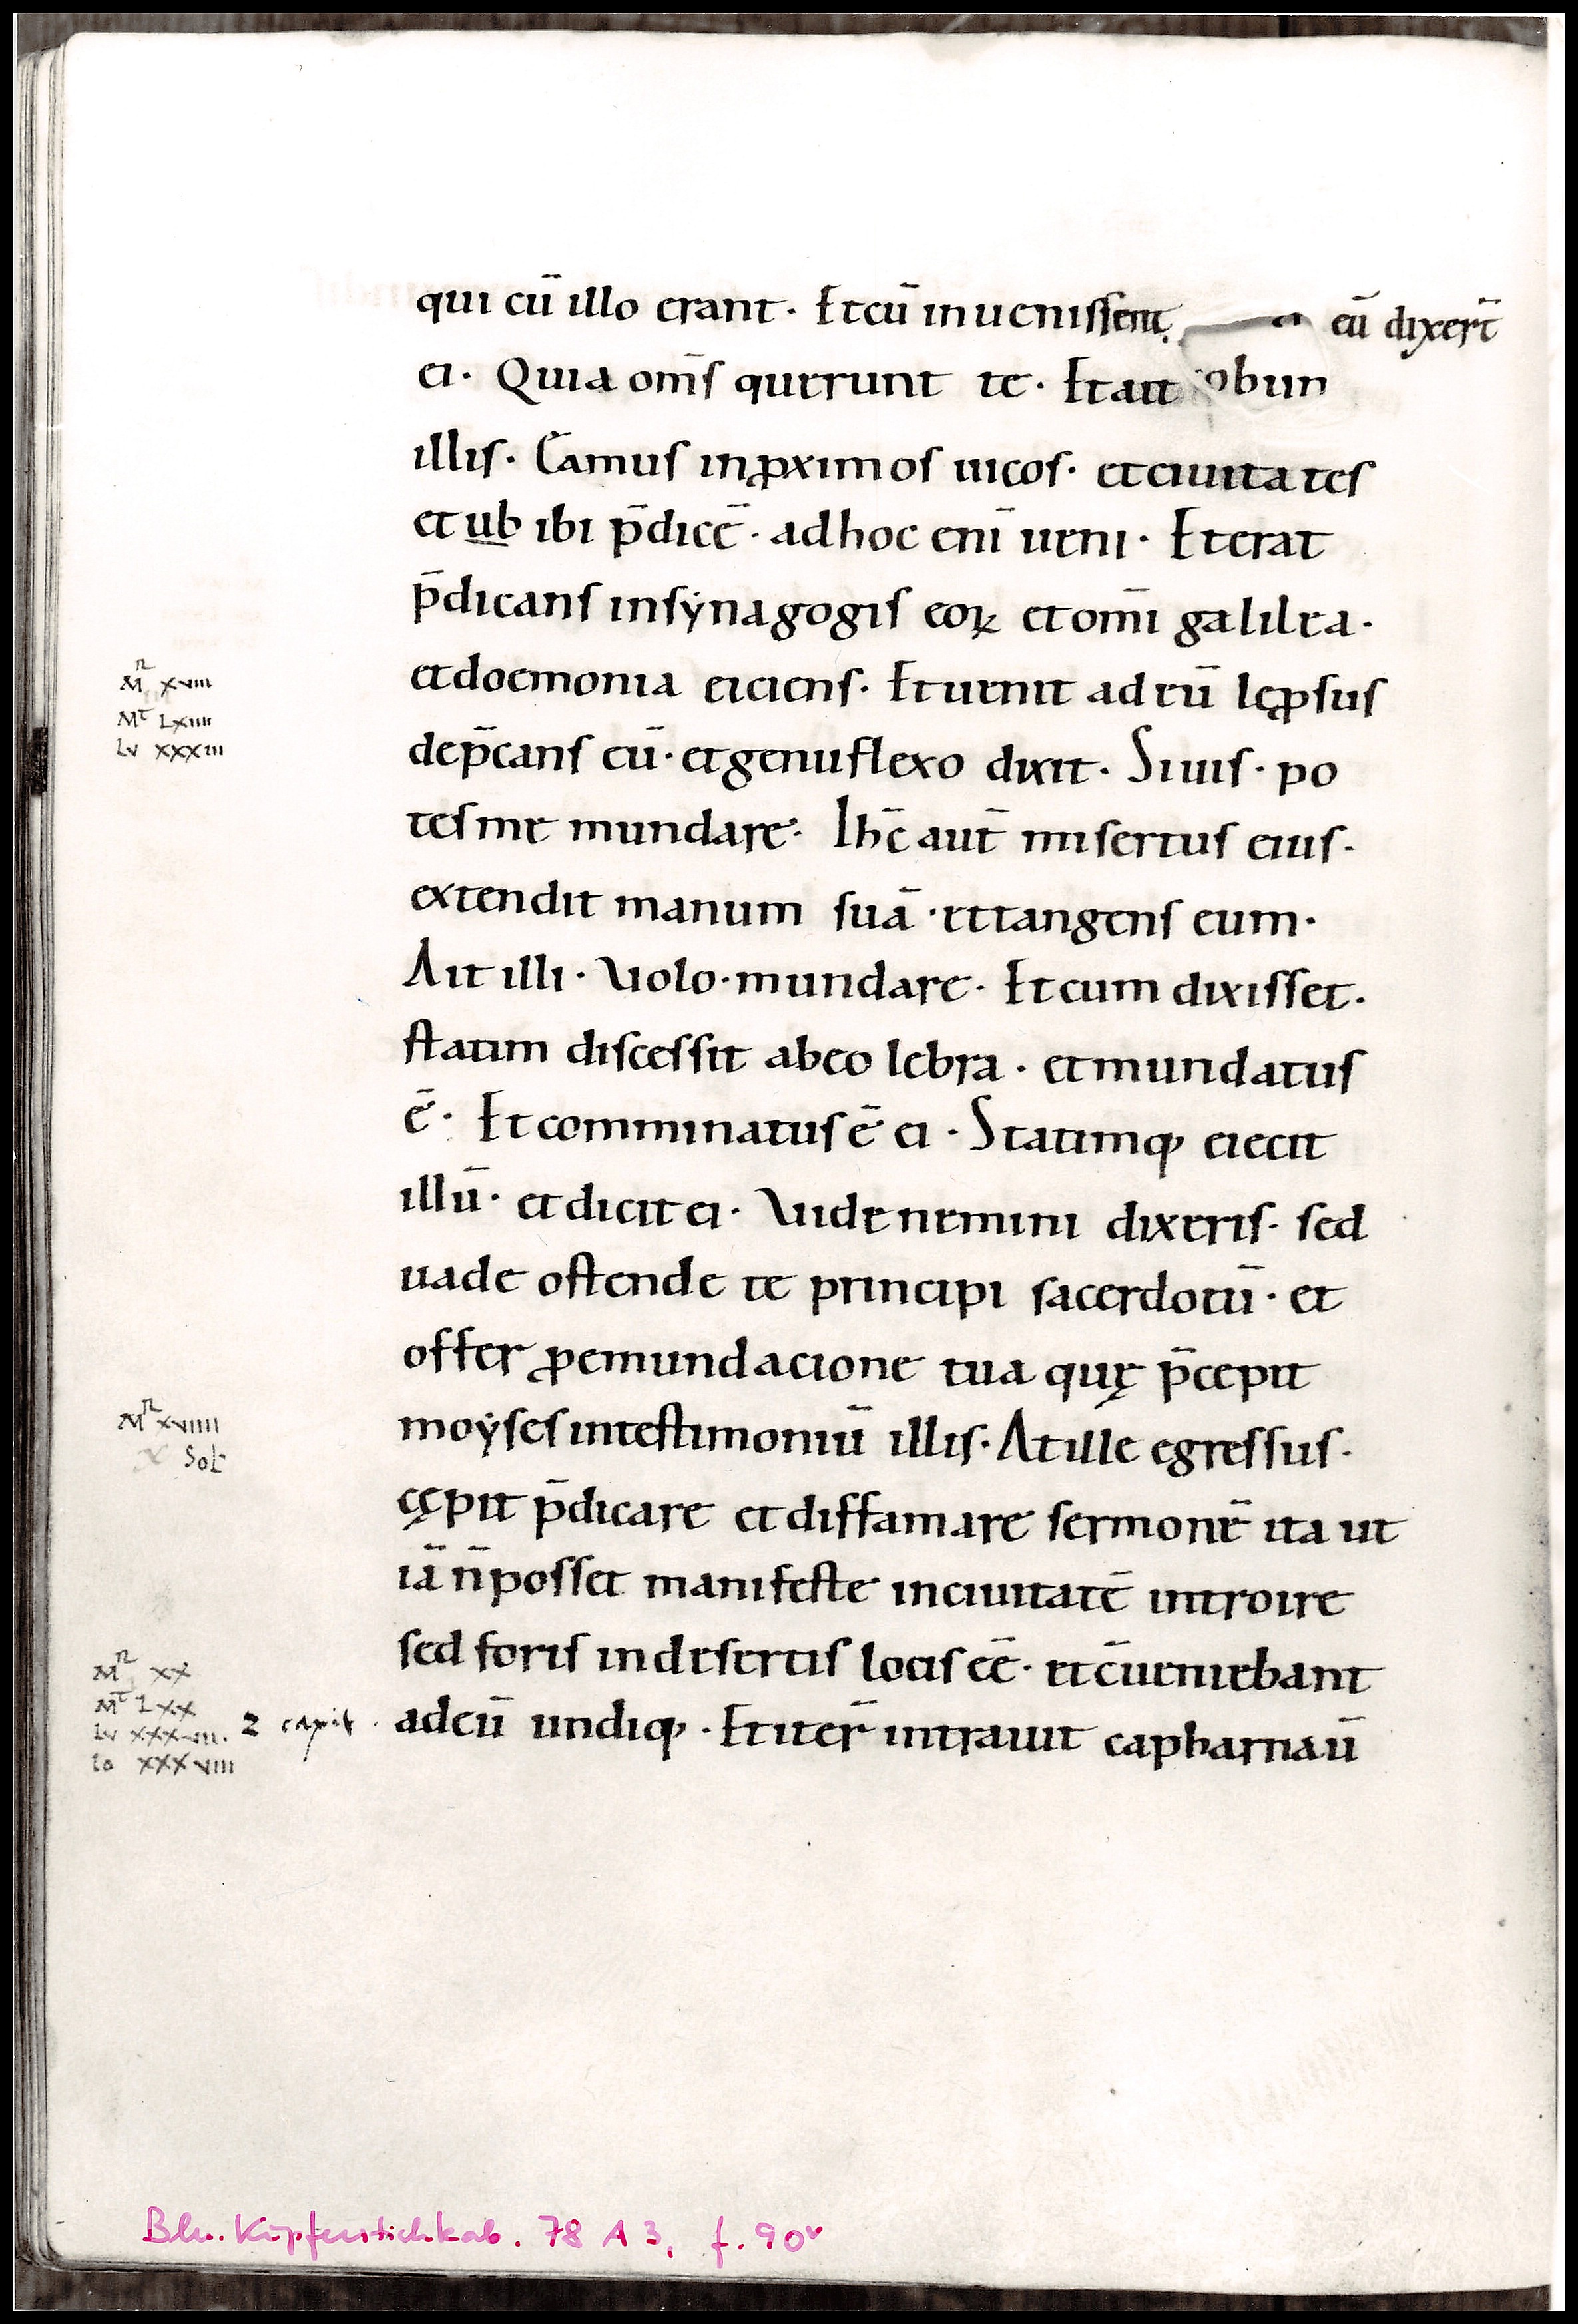 qui cū illo erant · Et cū inuenissent eū dixer̄t
ei · Quia om̄s querunt te · Et ait
illis · Eamus in ꝓximos uicos · et ciuitates
et ub ibi p̄dicē · ad hoc enī ueni · Et erat
p̄dicans in sẏnagogis eoꝝ et om̄i galilea ·
et doemonia eiciens · Et uenit ad eū lęꝓsus
dep̄cans eū · et genu flexo dixit · Si uis · po
tes me mundare · Ih̄c aut̄ misertus eius ·
extendit manum suā · et tangens eum ·
Ait illi · Volo · mundare · Et cum dixisset ·
statim discessit ab eo lebra · et mundatus
ē · Et comminatus ē ei · Statimqꝫ eiecit
illū · et dicit ei · Vide nemini dixeris · sed
uade ostende te principi sacerdotū · et
offer ꝓ emundacione tua quę p̄cepit
moẏses in testimoniū illis · At ille egressus ·
cępit p̄dicare et diffamare sermonē ita ut
iā n̄ posset manifeste in ciuitatē introire
sed foris in desertis locis eē · et c̄ueniebant
ad eū undiqꝫ · Et iter̄ intrauit capharnaū
MR xviii
Mt Lxiiii
Lv xxxiii
MR xviiii
Sol
MR xx
Mt Lxx
Lv xxxvii.
Io xxxviii
2 capit ·
Bln. Kupferstichkab. 78 A 3, f. 90v